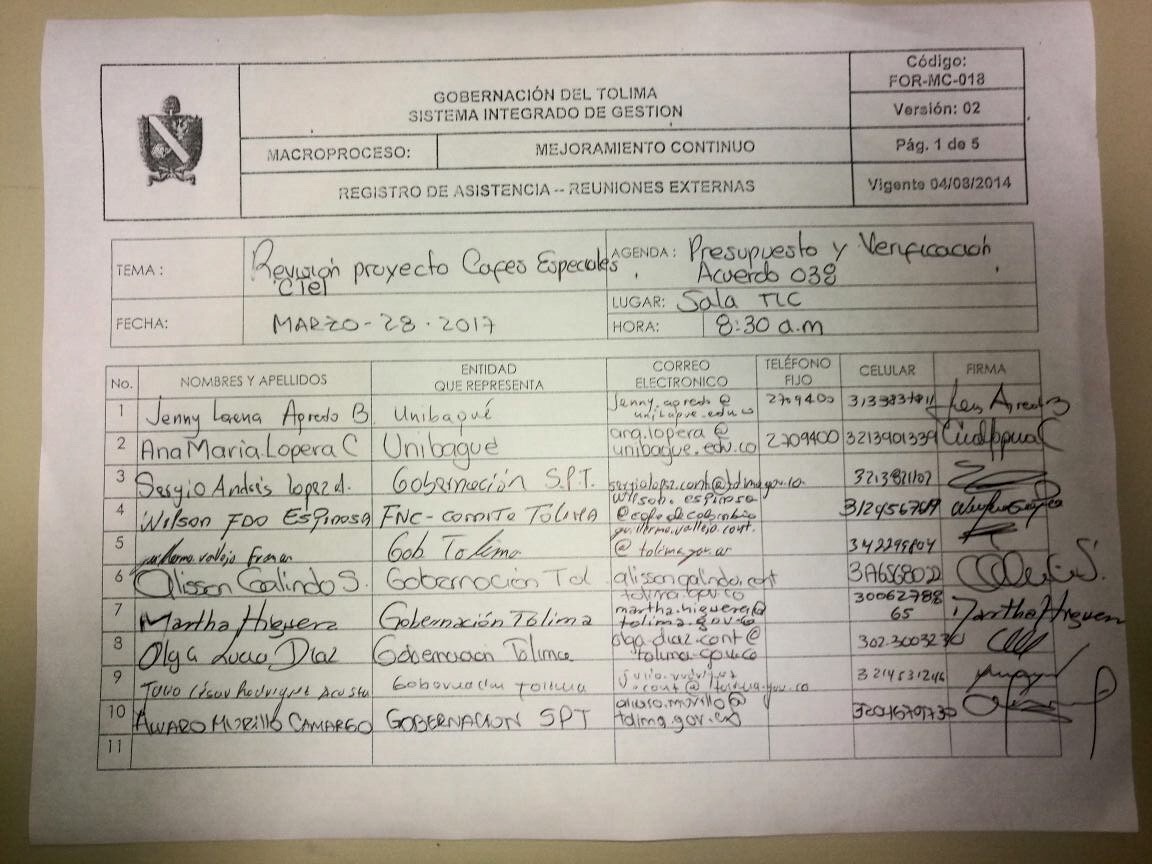 Código:
FOR-MC-018
GOBERNACIÓN DEL TOLIMA
SISTEMA INTEGRADO DE GESTION
Versión: 02
MACROPROCESO: MEJORAMIENTO CONTINUO
Pág. 1 de 5
REGISTRO DE ASISTENCIA -- REUNIONES EXTERNAS
Vigente 04/08/2014
TEMA: Revisión proyecto Cafes Especiales
CTeI
AGENDA: Presupuesto y Verificación
Acuerdo 038
LUGAR: Sala TIC
FECHA: MARZO - 28 - 2017
HORA: 8:30 a.m
No. NOMBRES Y APELLIDOS ENTIDAD QUE REPRESENTA CORREO ELECTRONICO TELÉFONO FIJO CELULAR FIRMA
1 Jenny Agredo B. Unibagué jenny.agredo @ 2709400
2 Ana Maria Lopera C Unibague ana.lopera @
unibague.edu.co 2709400 3213901339
3 Sergio Andrés Lopez A. Gobernación S.P.T.
4 Wilson FDO ESPINOSA FNC - COMITE TOLIMA wilson.espinosa
5 Guillermo vallejo Gob Tolima guillermo.vallejo.cont.
6 Alisson Galindo S. Gobernación Tol alisson.galindo.cont
tolima.gov.co
7 Martha Higuera Gobernación Tolima martha.higuera@
tolima.gov.co 30062788
65 Martha Higuera
8 Olga Lucia Diaz Gobernacion Tolima olga.diaz.cont @
tolima.gov.co
9 Julio César Rodriguez Acosta Gobernacion Tolima
10 ALVARO MURILLO CAMARGO GOBERNACION SPT alvaro.murillo@
tolima.gov.co
11